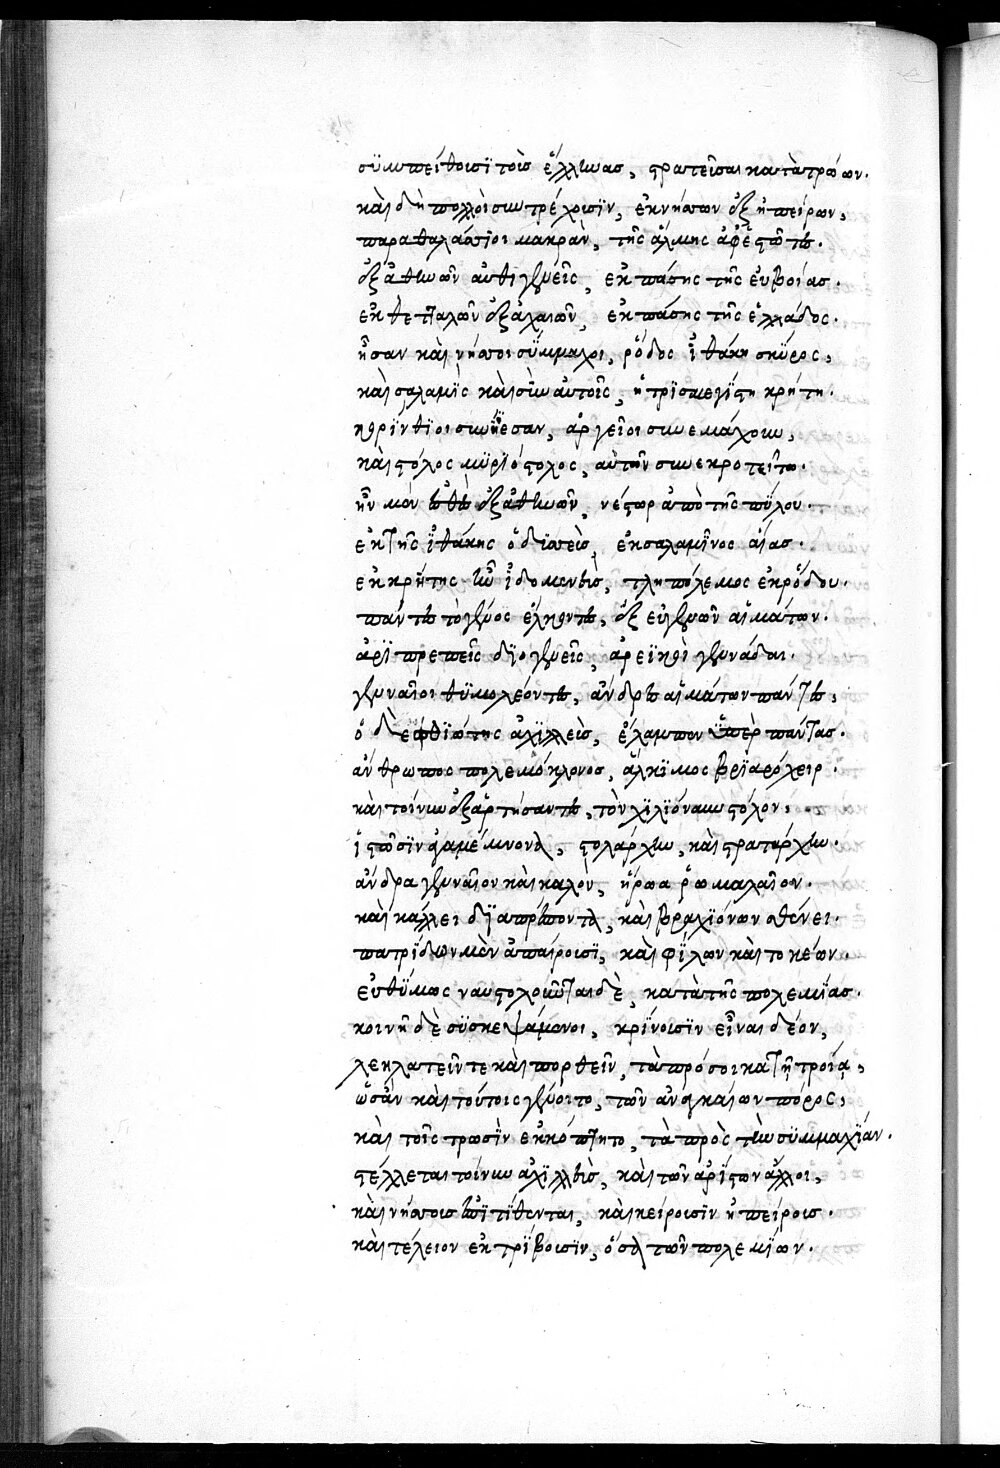 συμπείθουσι τοὺς ἕλληνας, στρατεῦσαι κατὰ τρώων.
καὶ δὴ πολλοὶ συντρέχουσιν, ἐκ νήσων ἐξ ἠπείρων,
παραθαλάσσιοι μακρὰν, τῆς ἅλμης ἀφεστῶτες.
ἐξ ἀθηνῶν αὐθιγενεῖς, ἐκ πάσης τῆς εὐβοίας.
ἐκ θετταλῶν ἐξ ἀχαιῶν, ἐκ πάσης τῆς ἑλλάδος.
ἦσαν καὶ νῆσοι σύμμαχοι, ῥόδος ἰθάκη σκῦρος,
καὶ σαλαμὶς καὶ σὺν αὐτοῖς, ἡ τρισμεγίστη κρήτη.
κορίνθιοι συνῄεσαν, ἀργεῖοι συνεμάχουν,
καὶ στόλος μυριόστολος, αὐτῶν συνεκροτεῖτο.
ἦν μὲν ἐξ ἀθηνῶν, νέστωρ ἀπὸ τῆς πύλου.
ἐκ τῆς ἰθάκης ὀδυσσεὺς, ἐκ σαλαμῖνος αἴας.
ἐκ κρήτης ἦν ἰδομενεὺς, τληπόλεμος ἐκ ῥόδου.
πάντες τὸ γένος ἕλκοντες, ἐξ εὐγενῶν αἱμάτων.
ἀριπρεπεῖς διογενεῖς, ἀρεϊκοὶ γεννάδαι.
γενναῖοι θυμολέοντες, ἄνδρες αἱμάτων πάντες,
ὁ δέ φθιώτης ἀχιλλεὺς, ἔλαμπεν ὑπὲρ πάντας.
ἄνθρωπος πολεμόκλονος, ἄλκιμος βριαρόχειρ.
καὶ τοίνυν ἐξαρτήσαντες, τὸν χιλιόναυν στόλον,
ἱστῶσιν ἀγαμέμνονα, στολάρχην, καὶ στρατάρχην.
ἄνδρα γενναῖον καὶ καλὸν, ἥρωα ῥωμαλαῖον.
καὶ κάλλει διαπρέποντα, καὶ βραχιόνων σθένει.
πατρίδων μὲν ἀπαίρουσι, καὶ φίλων καὶ τοκέων.
εὐθύμως ναυστολοῦνται δὲ, κατὰ τῆς πολεμίας.
κοινῇ δὲ συσκεψάμενοι, κρίνουσιν εἶναι δέον,
λεηλατεῖν τε καὶ πορθεῖν, τὰ πρόσοικα τῇ τροίᾳ,
ὡσὰν καὶ τούτοις γένοιτο, τῶν ἀναγκαίων πόρος,
καὶ τοῖς τρωσὶν ἐκκόπτοιτο, τὰ πρὸς τὴν συμμαχίαν.
στέλλεται τοίνυν ἀχιλλεὺς, καὶ τῶν ἀρίστων ἄλλοι,
καὶ νήσοις ἐπιτίθενται, καὶ κείρουσιν ἠπείρους.
καὶ τέλειον ἐκτρίβουσιν, ὅσα τῶν πολεμίων.